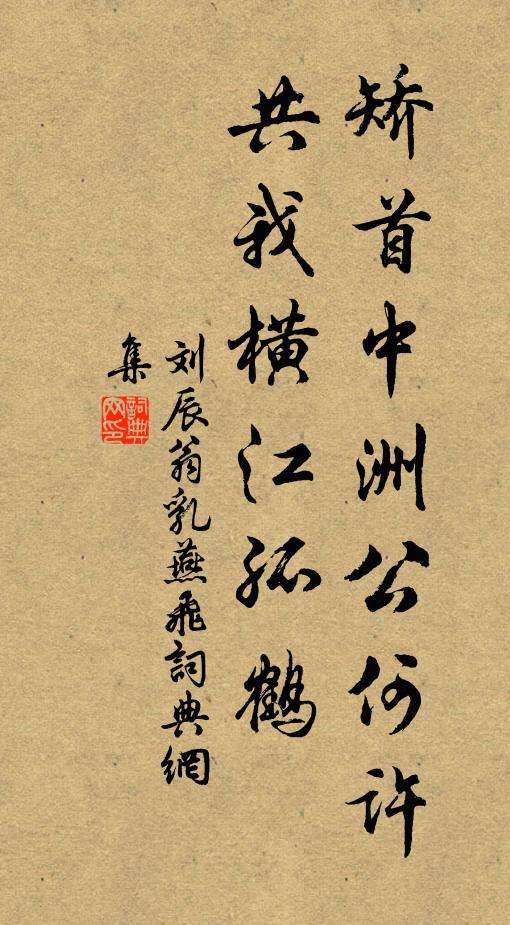 矫首中洲公何许
共我横江孤鹤
刘辰翁乳燕飛詞典網
集
詞典網印